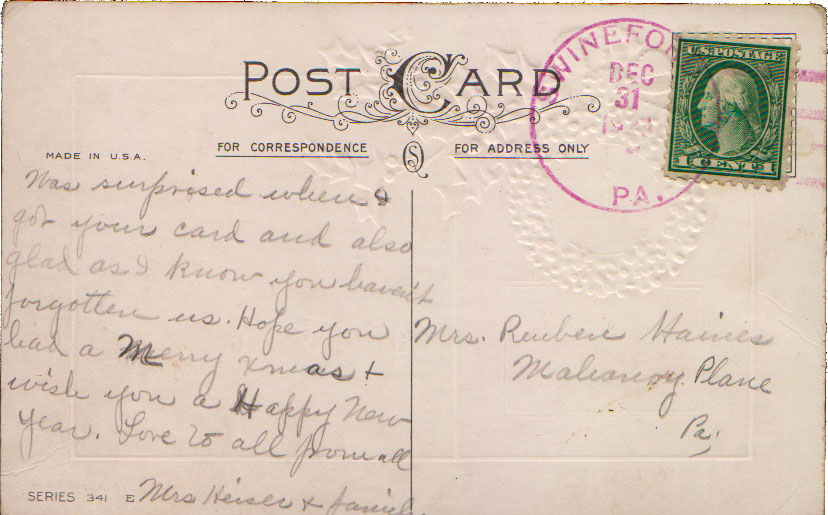 POST CARD
FOR CORRESPONDENCE
FOR ADDRESS ONLY
MADE IN U.S.A.
WINEFOR
DEC
31
PA.
U.S. POSTAGE
1 CENT 1
Was surprised when I
got your card and also
glad as I know you haven't
forgotten us. Hope you
had a Merry Xmas +
wish you a Happy New
Year. Love to all from all
Mrs Heiser + family
Mrs. Reuben Haines
Mahanoy Plane
Pa.
SERIES 341 E